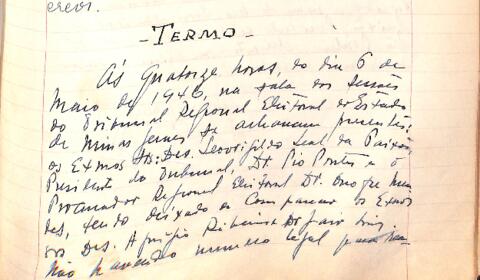 crevi.
- TERMO -
Ás Quatorze horas, do dia 6 de
Maio de 1946, na sala das Sessões
do Tribunal Regional Eleitoral do Estado
de Minas Gerais se achavam presentes
os Exmos Srs. Des. Leovigildo Leal da Paixão
Presidente do Tribunal, Dr. Pio Pontes e o
Procurador Regional Eleitoral Dr. Onofre Men
des, tendo deixado de comparecer os Exmos
Des. Aprigio Ribeiro
Não havendo numero legal para